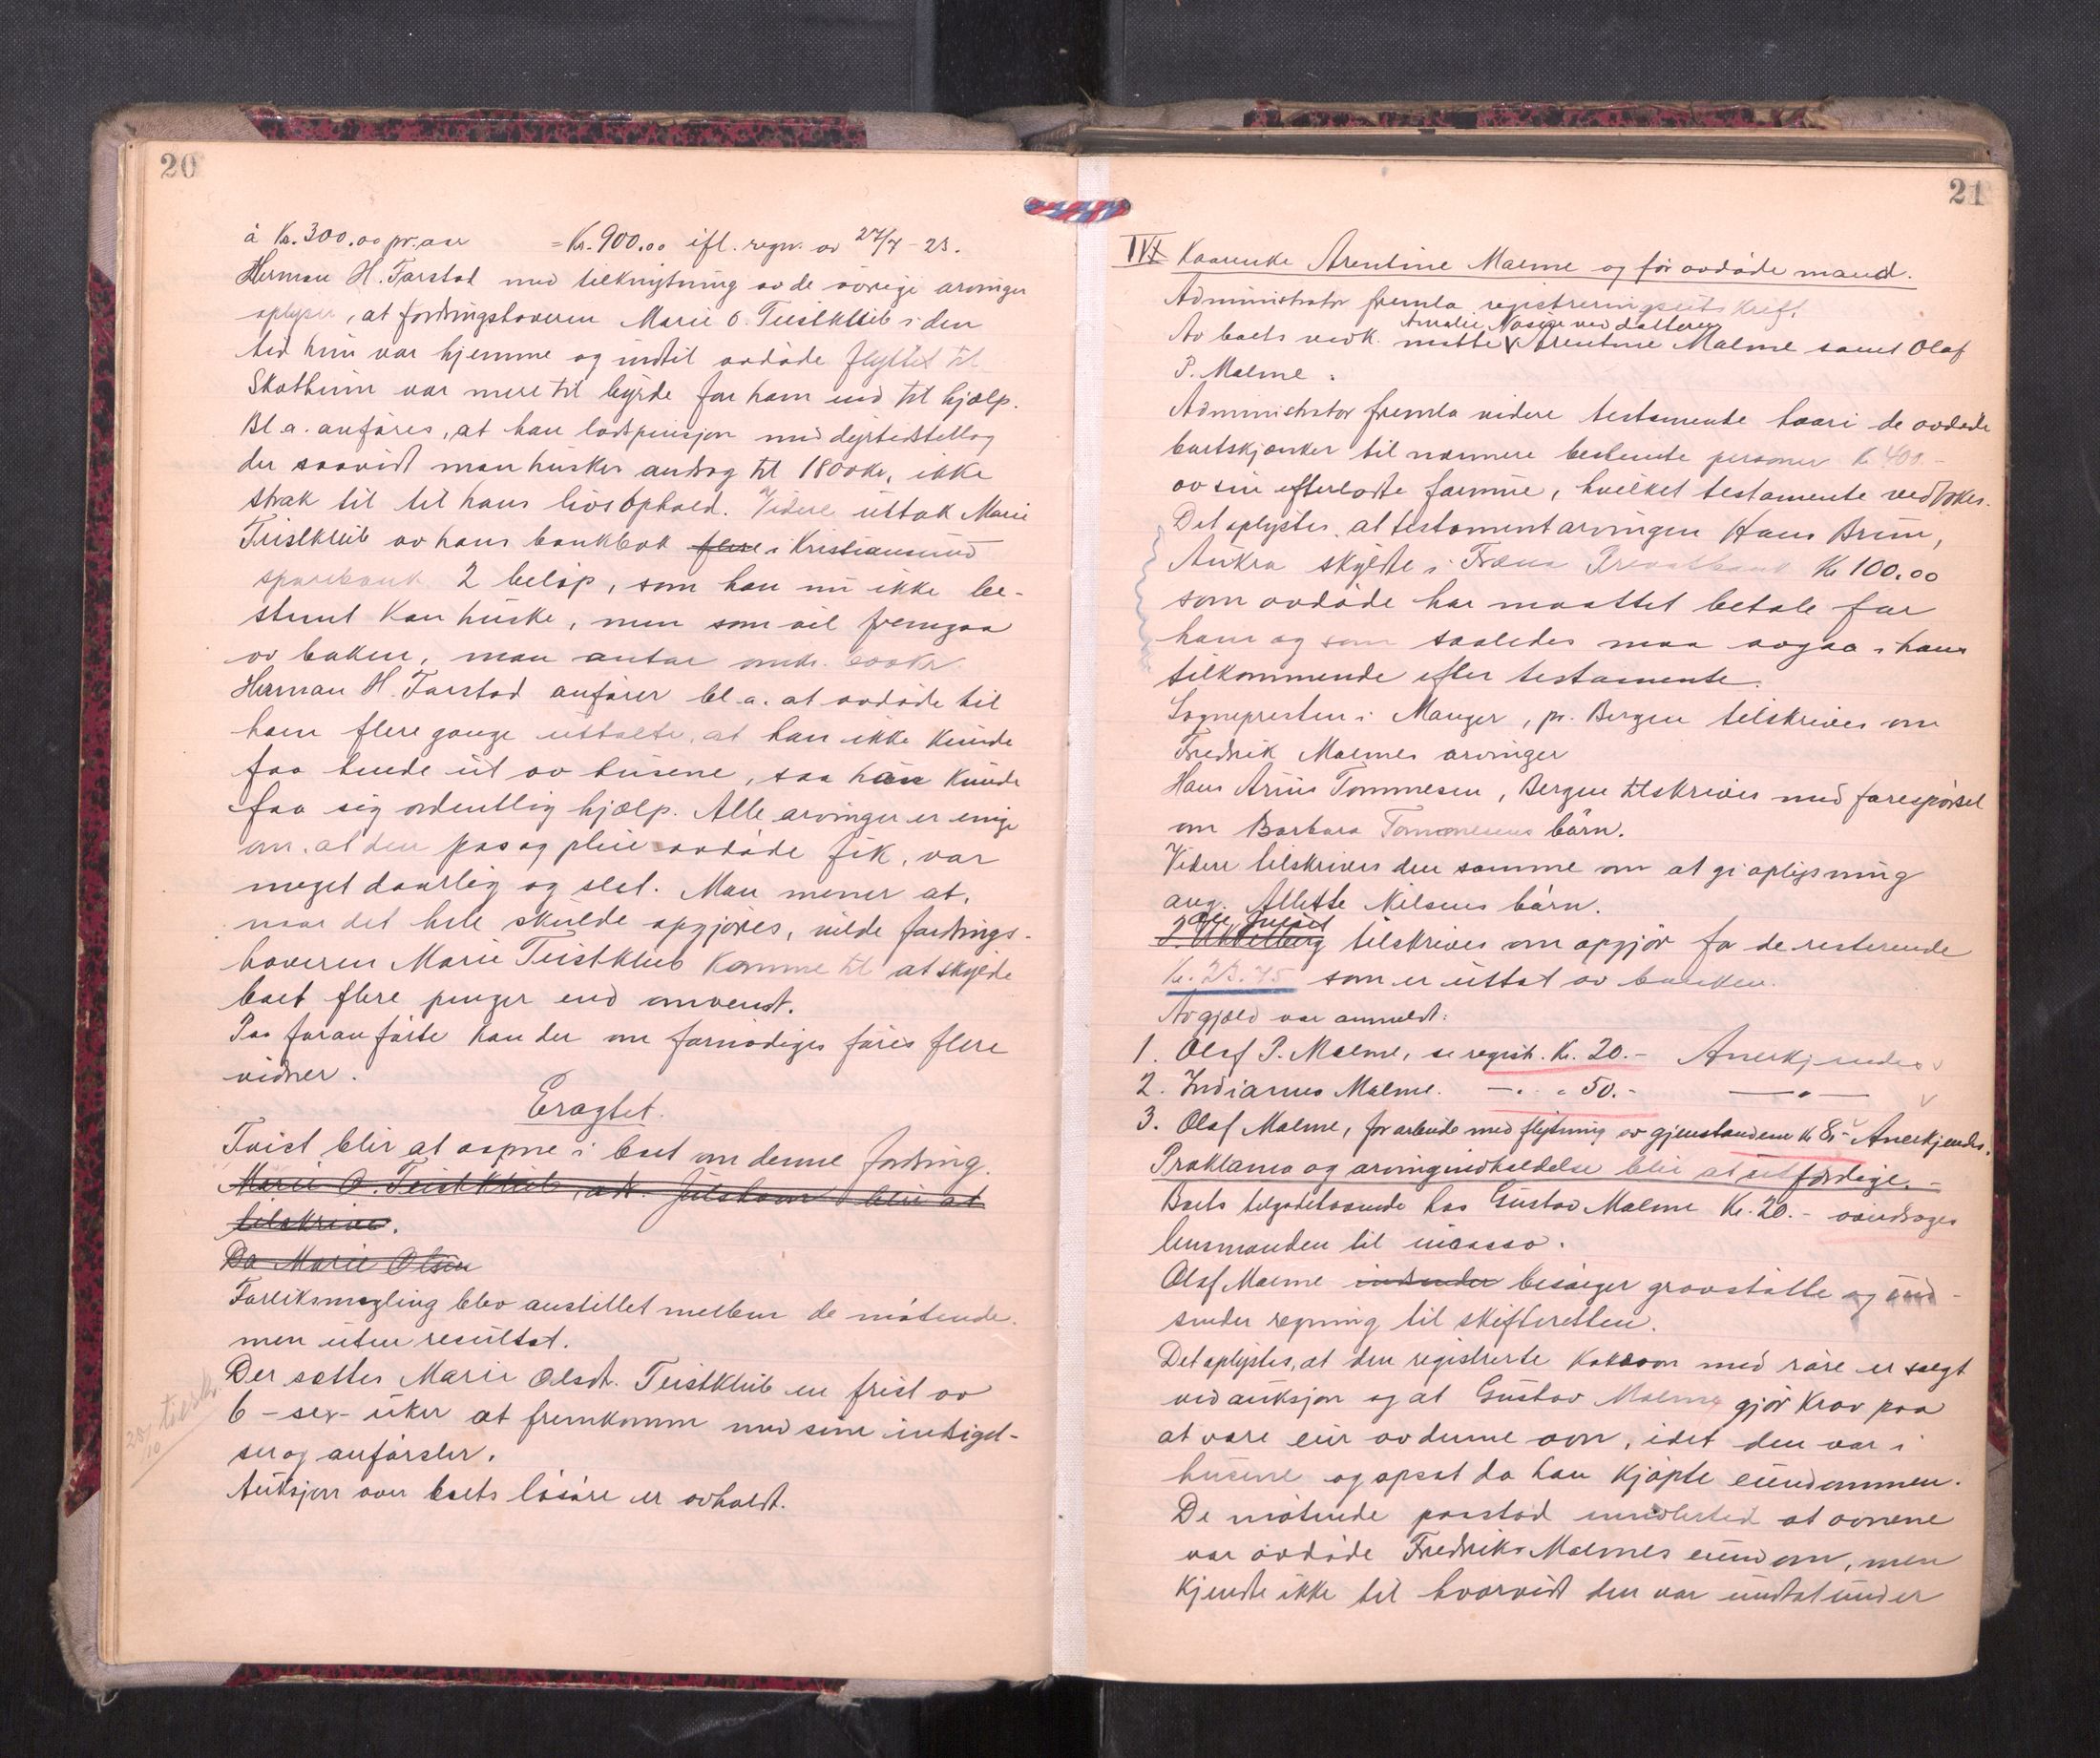 20
à Kr. 300.00 pr. aar = Kr. 900.00 ifl. regn. av 27/7 - 23.
Herman H. Farstad med tilknytning av de øvrige arvinger
oplyser, at fordringshaveren Marie O. Teistklub i den
tid hun var hjemme og indtil avdøde flyttet til
Skotheim var mere til byrde for ham end til hjælp.
Bl. a. anføres, at han lodspensjon med dyrtidstillæg
der saavidt man husker androg til 1800 kr, ikke
strak til til hans livsophold. Videre uttok Marie
Teistklub av hans bankbok flere i Kristiansund
sparebank 2 beløp, som han nu ikke be-
stemt kan huske, men som vil fremgaa
av boken, man antar
Herman H. Farstad anfører bl. a. at avdøde til
ham flere gange uttalte, at han ikke kunde
faa hende ut av husene, saa han kunde
faa sig ordentlig hjælp. Alle arvinger er enige
om, at den pas og pleie avdøde fik, var
meget daarlig og slet. Man mener at,
naar det hele skulde opgjøres, vilde fordrings-
haveren Marie Teistklub komme til at skylde
boet flere penger end omvendt.
Paa foranførte kan der om fornødiges føres flere
vidner.
Eragtet.
Tvist blir at aapne i boet om denne fordring.
Marie O. Teistklub, adr. Julshavn blir at
tilskrive.
Da Marie Olsen
Forliksmegling blev anstillet mellem de møtende.
men uten resultat.
Der sættes Marie Olsdt. Teistklub en frist av
6 - sex - uker at fremkomme med sine indsigel-
ser og anførsler.
25/10 tilskr.
Auksjon over boets løsøre er avholdt.
21
IVt Kaarenke Arentine Malme og før avdøde mand.
Administrator fremla registreringsutskrift.
Amalie Nasje ved datteren
Av boets vedk. møtte Arentine Malme samt Olaf
P. Malme.
Administrator fremla videre testamente hvori de avdøde
bortskjænker til nærmere bestemte personer Kr 400.-
av sin efterlatte formue, hvilket testamente vedtokes.
Det oplystes, at testamentarvingen Hans Brun,
Aukra skyldte i Fræna Privatbank Kr 100.00
som avdøde har maattet betale for
ham og som saaledes maa avgaa i hans
tilkommende efter testamente.
Sognepresten i Manger, pr. Bergen tilskrives om
Fredrik Malmes arvinger
Hans Arius Tommesen, Bergen tilskrives med forespørsel
om Barbara Tommesens børn.
Videre tilskrives den samme om at gi oplysning
ang. Allette Nilsens børn.
tilskrives om opgjør for de resterende
Kr. 23.75 som er uttat av banken.
Av gjæld var anmeldt:
1. Olaf P. Malme, se regist. Kr. 20.- Anerkjendes
2. Indianus Malme. —"— " 50.- —"—
3. Olaf Malme, for arbeide med flytning av gjenstandene Kr 8.- Anerkjendes.
Proklama og arvingindkaldelse blir at utfærdige.-
Boets tilgodehavende hos Gustav Malme Kr. 20.- overdrages
lensmanden til incasso.
Olaf Malme indsender besørger gravstøtte og ind-
sender regning til skifteretten.
Det oplystes, at den registrerte kakovn med røre er solgt
ved auksjon og at Gustav Malme gjør krav paa
at være eier av denne ovn, idet den var i
husene og opsat da han kjøpte eiendommen.
De møtende paastod imidlertid at ovnene
var avdøde Fredrik Malmes eiendom, men
kjendte ikke til hvorvidt den var undtat under